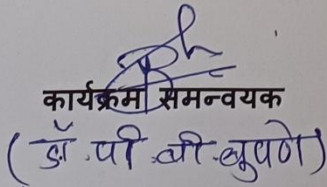 कार्यक्रम समन्वयक
(डॉ. पी. बी. लुपणे)